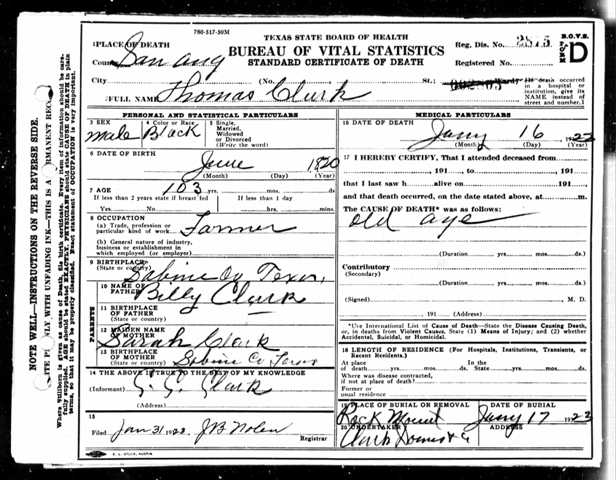 780-317-30M
TEXAS STATE BOARD OF HEALTH
BUREAU OF VITAL STATISTICS
STANDARD CERTIFICATE OF DEATH
Reg. Dis. No. 2875
Registered No.
B.O.V.S.
FORM
D
1 PLACE OF DEATH
County San Aug
City (No. St.;
(If death occurred
in a hospital or
institution, give its
NAME instead of
street and number.)
2 FULL NAME Thomas Clark
PERSONAL AND STATISTICAL PARTICULARS
3 SEX
male
4 Color or Race
Black
5 Single,
Married,
Widowed
or Divorced
(Write the word)
6 DATE OF BIRTH
June 1820
(Month) (Day) (Year)
7 AGE 103 yrs. mos. ds.
If less than 2 years state if breast fed If less than 1 day
Yes. No hrs. min.
8 OCCUPATION
(a) Trade, profession or
particular kind of work Farmer
(b) General nature of industry,
business or establishment in
which employed (or employer)
9 BIRTHPLACE
(State or country) Sabine Co Texas
PARENTS
10 NAME OF
FATHER Billy Clark
11 BIRTHPLACE
OF FATHER
(State or country)
12 MAIDEN NAME
OF MOTHER
Sarah Clark
13 BIRTHPLACE
OF MOTHER
(State or country) Sabine Co Texas
14 THE ABOVE IS TRUE TO THE BEST OF MY KNOWLEDGE
(Informant) Clark
(Address)
15
Filed Jan 31 1923 J B Nolen
Registrar
MEDICAL PARTICULARS
16 DATE OF DEATH
Jany 16, 1923
(Month) (Day) (Year)
17 I HEREBY CERTIFY, That I attended deceased from
, 191 , to , 191
that I last saw h alive on 191
and that death occurred, on the date stated above, at m.
The CAUSE OF DEATH* was as follows:
old age
(Duration yrs. mos. ds.
Contributory
(Secondary)
(Duration yrs. mos. ds.
(Signed) M. D.
, 191 (Address)
*Use International List of Cause of Death—State the Disease Causing Death,
or, in deaths from Violent Causes, State (1) Means of Injury; and (2) whether
Accidental, Suicidal, or Homicidal.
18 LENGTH OF RESIDENCE (For Hospitals, Institutions, Transients, or
Recent Residents.)
At place In the
of death yrs. mos. ds. State yrs. mos. ds.
Where was disease contracted,
if not at place of death?
Former or
usual residence
19 PLACE OF BURIAL OR REMOVAL
Rock Mount
DATE OF BURIAL
Jany 17 1923
20 UNDERTAKER
ADDRESS
NOTE WELL—INSTRUCTIONS ON THE REVERSE SIDE.